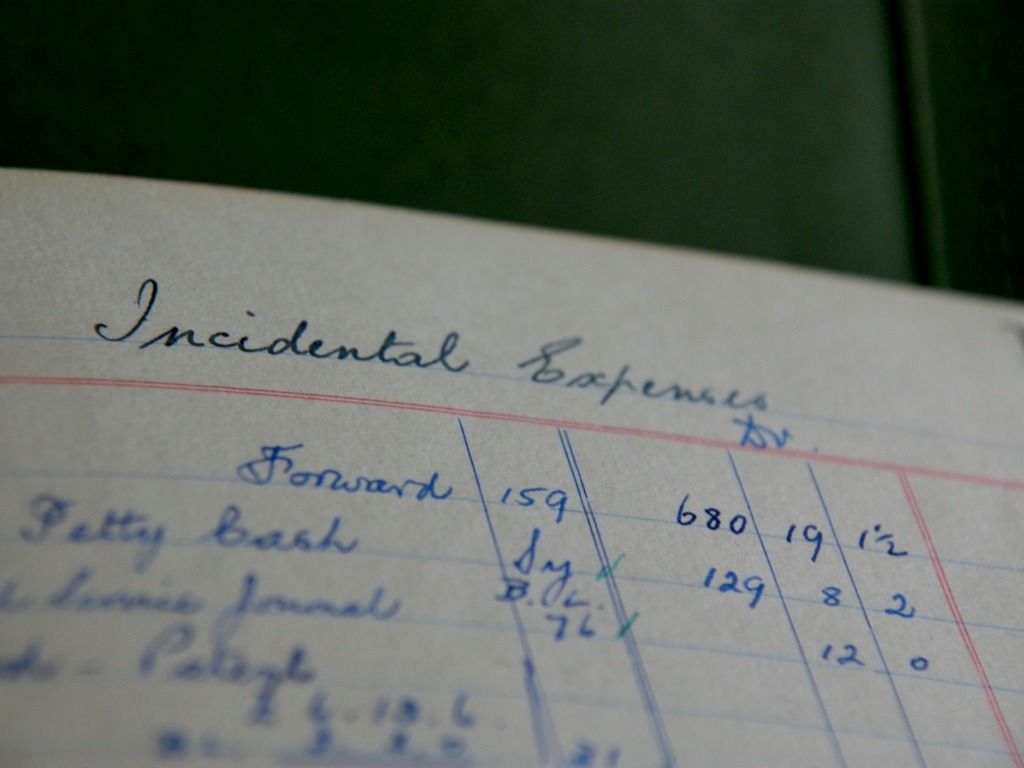 Incidental Expenses
Dr.
Forward 159 680 19 1½
Petty Cash Sy 129 8 2
Service Journal B.L. 76 12 0
- Patent
6 . 13 . 6